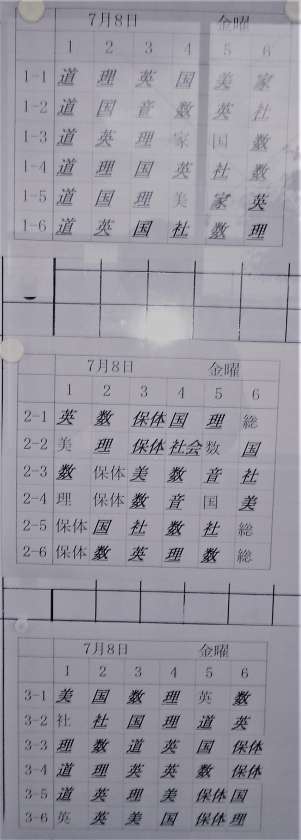 7月8日 金曜
1 2 3 4 5 6
1-1 道 理 英 国 美 家
1-2 道 国 音 数 英 社
1-3 道 英 理 家 国 数
1-4 道 理 国 英 社 数
1-5 道 国 理 美 家 英
1-6 道 英 国 社 数 理
7月8日 金曜
1 2 3 4 5 6
2-1 英 数 保体 国 理 総
2-2 美 理 保体 社会 数 国
2-3 数 保体 美 数 音 社
2-4 理 保体 数 音 国 美
2-5 保体 国 社 数 社 総
2-6 保体 数 英 理 数 総
7月8日 金曜
1 2 3 4 5 6
3-1 美 国 数 理 英 数
3-2 社 社 国 理 道 英
3-3 理 数 道 英 国 保体
3-4 道 理 英 英 数 保体
3-5 道 英 理 美 保体 国
3-6 英 英 美 国 保体 理